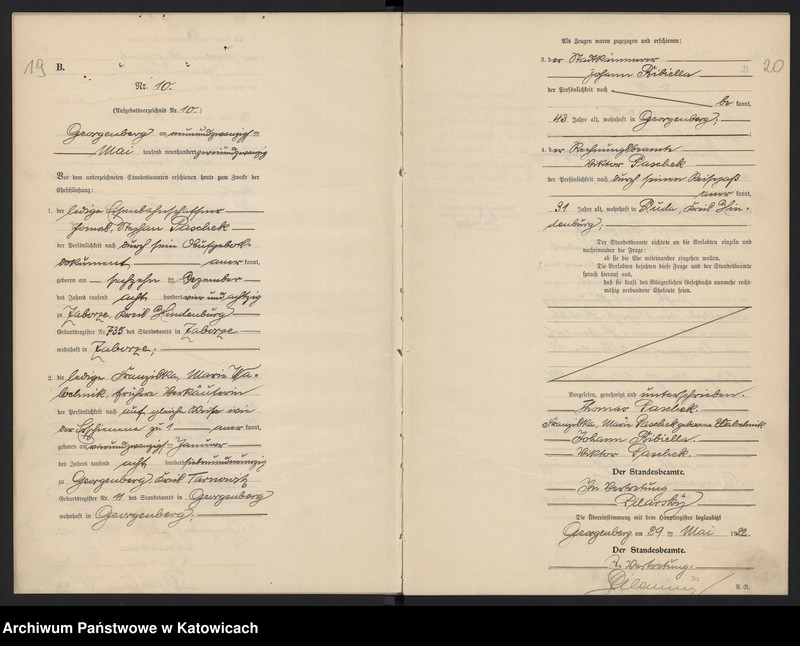 19
B.
Nr. 10.
(Aufgebotsverzeichnis Nr. 10.)
Georgenberg am neunundzwanzigsten
Mai tausend neunhundert zweiundzwanzig
Vor dem unterzeichneten Standesbeamten erschienen heute zum Zwecke der
Eheschließung:
1. der ledige Eisenbahnschaffner
Thomas, Stephan Paschek
der Persönlichkeit nach durch sein Aufgebots-
dokument anerkannt,
geboren am sechzehn ten Dezember
des Jahres tausend acht hundert vier und achtzig
zu Zaborze, Kreis Hindenburg
Geburtsregister Nr. 735 des Standesamts in Zaborze
wohnhaft in Zaborze;
2. die ledige Franziska, Marie
frühere Verkäuferin
der Persönlichkeit nach auf gleiche Weise wie
der Erschienene zu 1 anerkannt,
geboren am vierundzwanzigsten Januar
des Jahres tausend acht hundert siebenundneunzig
zu Georgenberg, Kreis Tarnowitz
Geburtsregister Nr. 11 des Standesamts in Georgenberg
wohnhaft in Georgenberg;
20
Als Zeugen waren zugezogen und erschienen:
3. der Stadtkämmerer
Johann Kibiella
der Persönlichkeit nach
be kannt,
43 Jahre alt, wohnhaft in Georgenberg;
4. der Rechnungsbeamte
Viktor Paschek
der Persönlichkeit nach durch seinen Reisepaß
anerkannt,
31 Jahre alt, wohnhaft in Ruda, Kreis Hin-
denburg;
Der Standesbeamte richtete an die Verlobten einzeln und
nacheinander die Frage:
ob sie die Ehe miteinander eingehen wollen.
Die Verlobten bejahten diese Frage und der Standesbeamte
sprach hierauf aus,
daß sie kraft des Bürgerlichen Gesetzbuchs nunmehr recht-
mäßig verbundene Eheleute seien.
Vorgelesen, genehmigt und unterschrieben.
Thomas Paschek.
Franziska, Marie Paschek geborene
Johann Kibiella.
Viktor Paschek.
Der Standesbeamte.
In Vertretung
Pilarsky
Die Übereinstimmung mit dem Hauptregister beglaubigt
Georgenberg, am 29 ten Mai 1922.
Der Standesbeamte.
In Vertretung.
Archiwum Państwowe w Katowicach